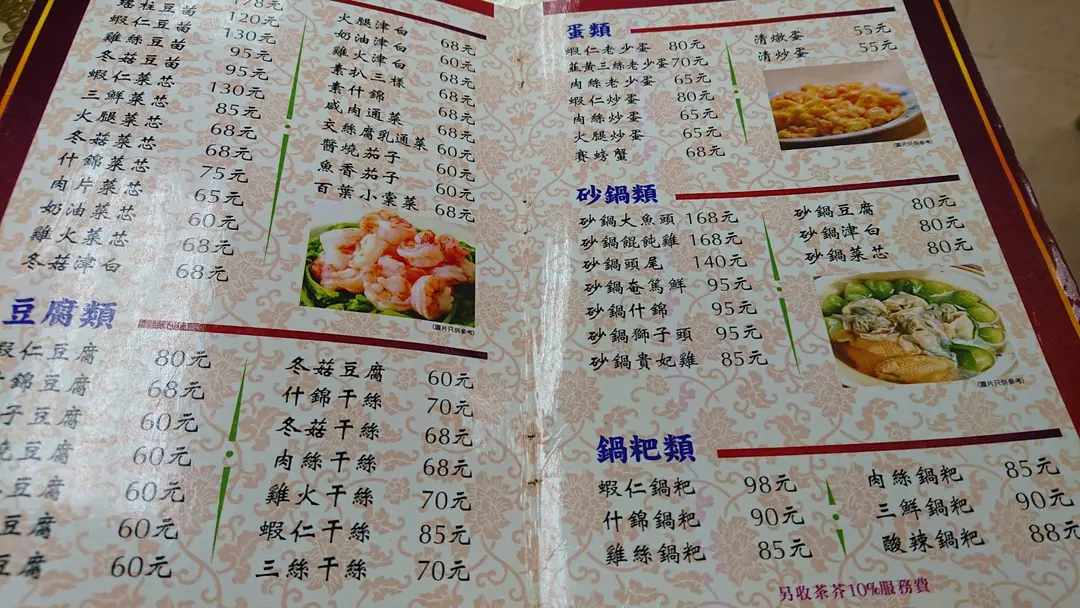 178元
瑤柱豆苗 120元
蝦仁豆苗 130元
雞絲豆苗 95元
冬菇豆苗 95元
蝦仁菜芯 130元
三鮮菜芯 85元
火腿菜芯 68元
冬菇菜芯 68元
什錦菜芯 75元
肉片菜芯 65元
奶油菜芯 60元
雞火菜芯 68元
冬菇津白 68元
火腿津白 68元
奶油津白 60元
雞火津白 68元
素扒三樣 68元
素什錦 68元
咸肉通菜 68元
交絲腐乳通菜 60元
醬燒茄子 60元
魚香茄子 60元
百葉小棠菜 68元
(圖片只供參考)
豆腐類
蝦仁豆腐 80元
什錦豆腐 68元
子豆腐 60元
燒豆腐 60元
豆腐 60元
豆腐 60元
豆腐 60元
冬菇豆腐 60元
什錦干絲 70元
冬菇干絲 68元
肉絲干絲 68元
雞火干絲 70元
蝦仁干絲 85元
三絲干絲 70元
蛋類
蝦仁老少蛋 80元
韮黃三絲老少蛋 70元
肉絲老少蛋 65元
蝦仁炒蛋 80元
肉絲炒蛋 65元
火腿炒蛋 65元
賽螃蟹 68元
清燉蛋 55元
清炒蛋 55元
(圖片只供參考)
砂鍋類
砂鍋大魚頭 168元
砂鍋餛飩雞 168元
砂鍋頭尾 140元
砂鍋奄篤鮮 95元
砂鍋什錦 95元
砂鍋獅子頭 95元
砂鍋貴妃雞 85元
砂鍋豆腐 80元
砂鍋津白 80元
砂鍋菜芯 80元
(圖片只供參考)
鍋粑類
蝦仁鍋粑 98元
什錦鍋粑 90元
雞絲鍋粑 85元
肉絲鍋粑 85元
三鮮鍋粑 90元
酸辣鍋粑 88元
另收茶芥10%服務費